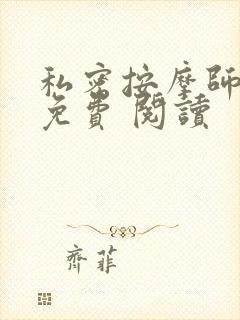 私密按摩師
免費 閱讀
齊菲